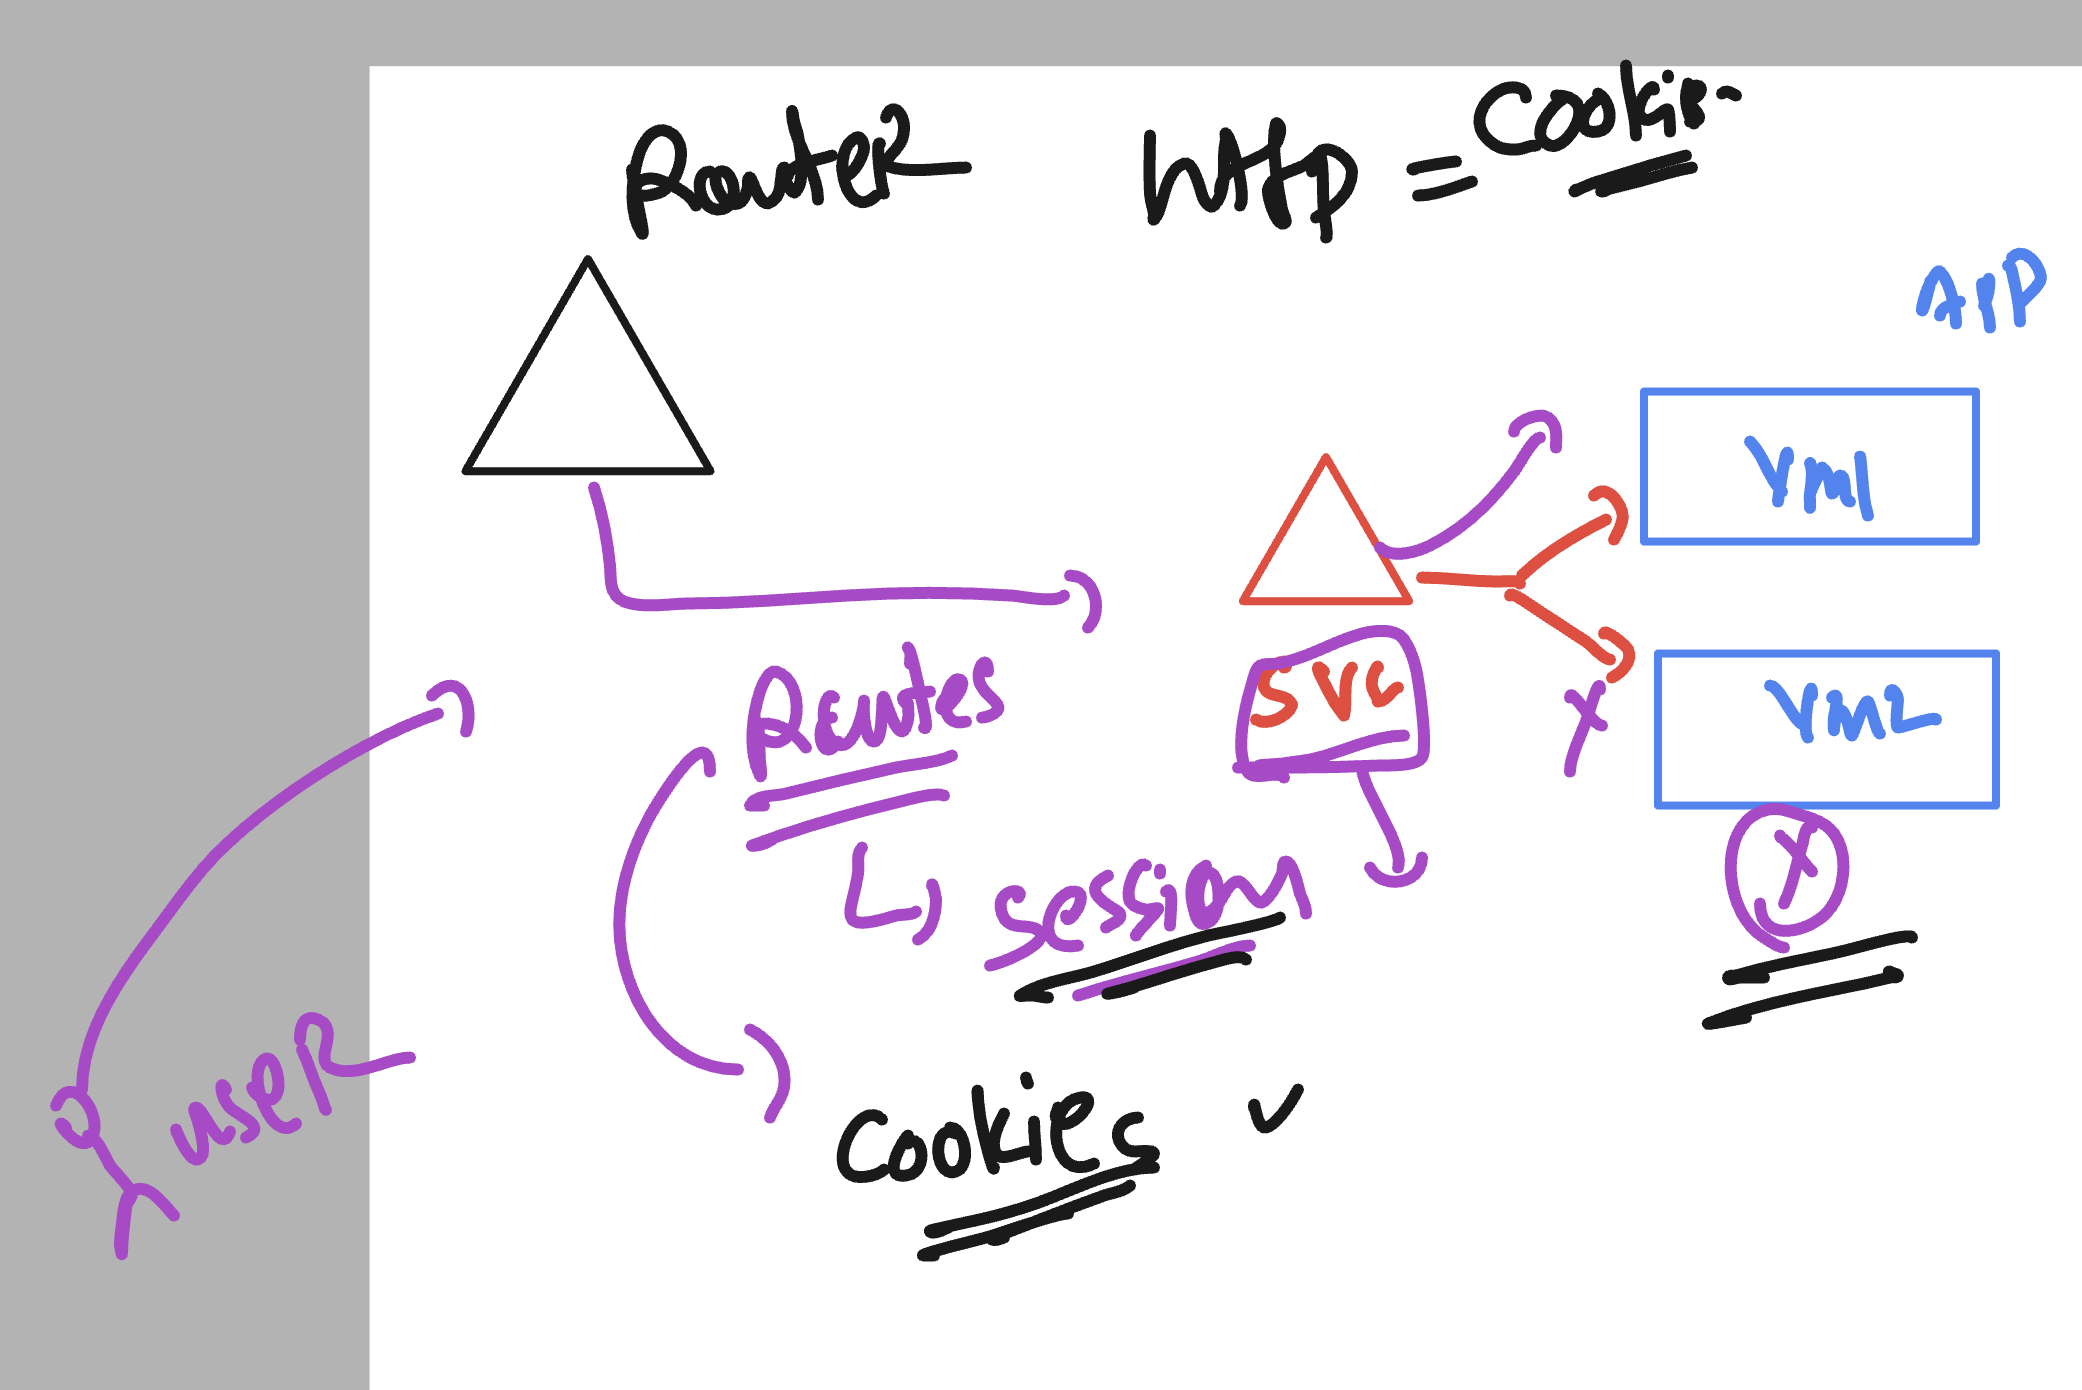 Router
http = Cookie
APP
VM1
SVC
VM2
Routes
X
X
session
user
Cookies ✓